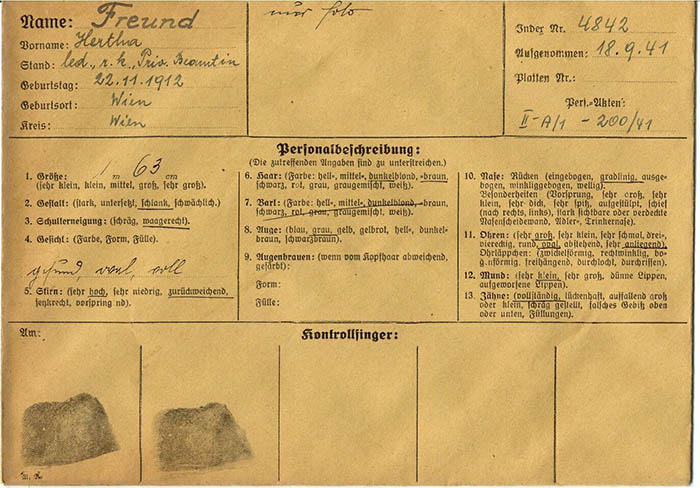 Name: Freund
Vorname: Hertha
Stand: led., r. k., Priv. Beamtin
Geburtstag: 22.11.1912
Geburtsort: Wien
Kreis: Wien
nur foto
Index Nr. 4842
Aufgenommen: 18.9.41
Platten Nr.:
Pers.-Akten:
II-A/1 - 200/41
Personalbeschreibung:
(Die zutreffenden Angaben sind zu unterstreichen.)
1. Größe: 1 m 63 cm
(sehr klein, klein, mittel, groß, sehr groß).
2. Gestalt: (stark, untersetzt, schlank, schwächlich).
3. Schulterneigung: (schräg, waagerecht).
4. Gesicht: (Farbe, Form, Fülle).
gesund, oval, voll
5. Stirn: (sehr hoch, sehr niedrig, zurückweichend,
senkrecht, vorspring nd).
6. Haar: (Farbe: hell-, mittel-, dunkelblond, -braun,
schwarz, rot, grau, graugemischt, weiß).
7. Bart: (Farbe: hell-, mittel-, dunkelblond, -braun,
schwarz, rot, grau, graugemischt, weiß).
8. Auge: (blau, grau, gelb, gelbrot, hell-, dunkel-
braun, schwarzbraun).
9. Augenbrauen: (wenn vom Kopfhaar abweichend,
gefärbt):
Form:
Fülle:
10. Nase: Rücken (eingebogen, gradlinig, ausge-
bogen, winkliggebogen, wellig).
Besonderheiten (Vorsprung, sehr groß, sehr
klein, sehr dick, sehr spitz, aufgestülpt, schief
(nach rechts, links), stark sichtbare oder verdeckte
Nasenscheidewand, Adler-, Trinkernase).
11. Ohren: (sehr groß, sehr klein, sehr schmal, drei-,
viereckig, rund, oval, abstehend, sehr anliegend).
Ohrläppchen: (zwickelförmig, rechtwinklig, bo-
g.nförmig, freihängend, durchlocht, durchrissen).
12. Mund: (sehr klein, sehr groß, dünne Lippen,
aufgeworfene Lippen).
13. Zähne: (vollständig, lückenhaft, auffallend groß
oder klein, schräg gestellt, falsches Gebiß oben
oder unten, Füllungen).
Am:
Kontrollfinger: